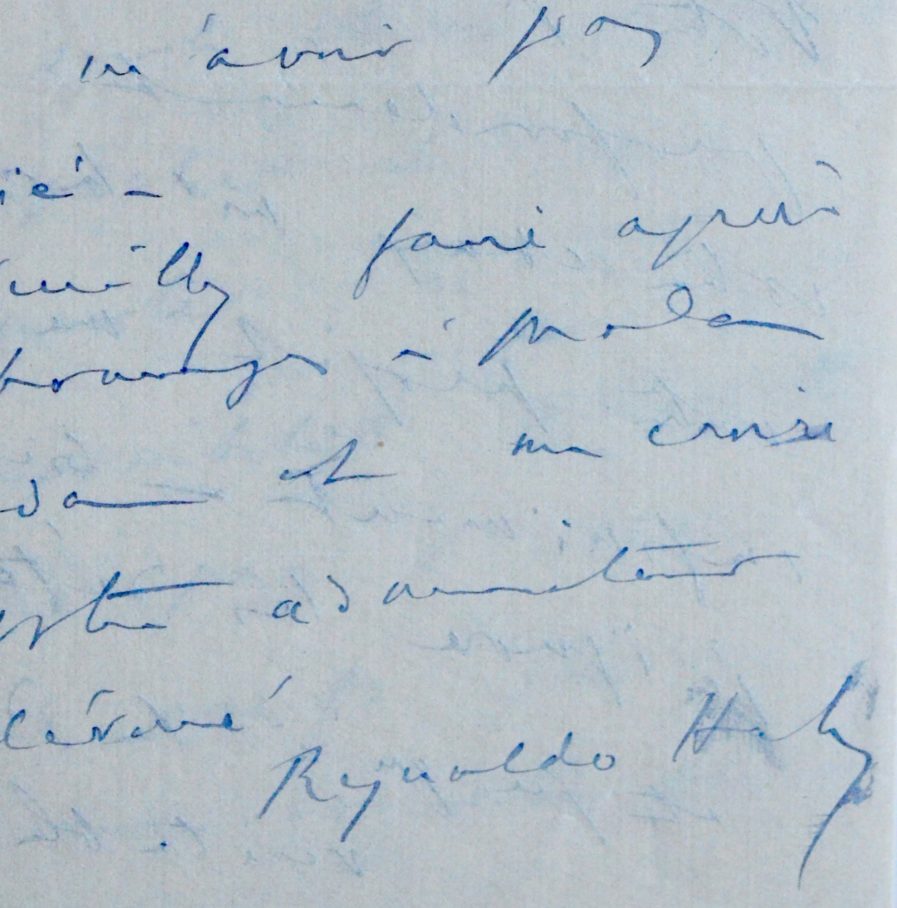 m'avoir pas
ié –
Veuillez faire agréer
hommages à Madame
et me croire
votre admirateur
dévoué
Reynaldo Hahn